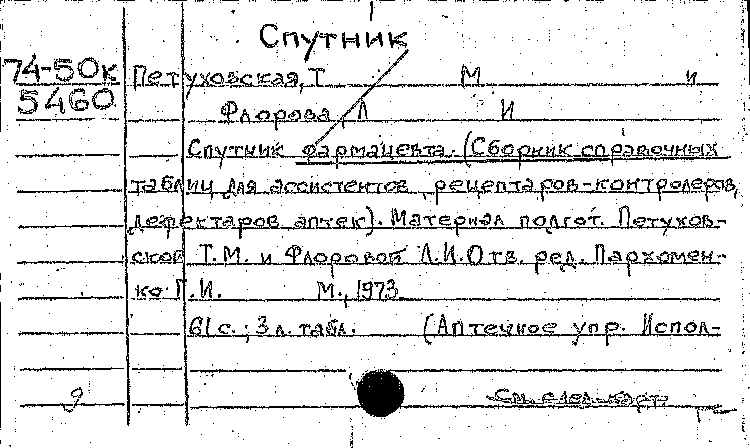 Спутник
74-50к
5460
Петуховская, Т М и
Флорова, Л И
Спутник фармацевта. (Сборник справочных
таблиц для ассистентов, рецептаров-контролеров,
дефектаров аптек). Материал подгот. Петухов-
ской Т.М. и Флоровой Л.И. Отв. ред. Пархомен-
ко Г.И. М., 1973
61 с.; 3 л. табл. (Аптечное упр. Испол-
См. след. карт.